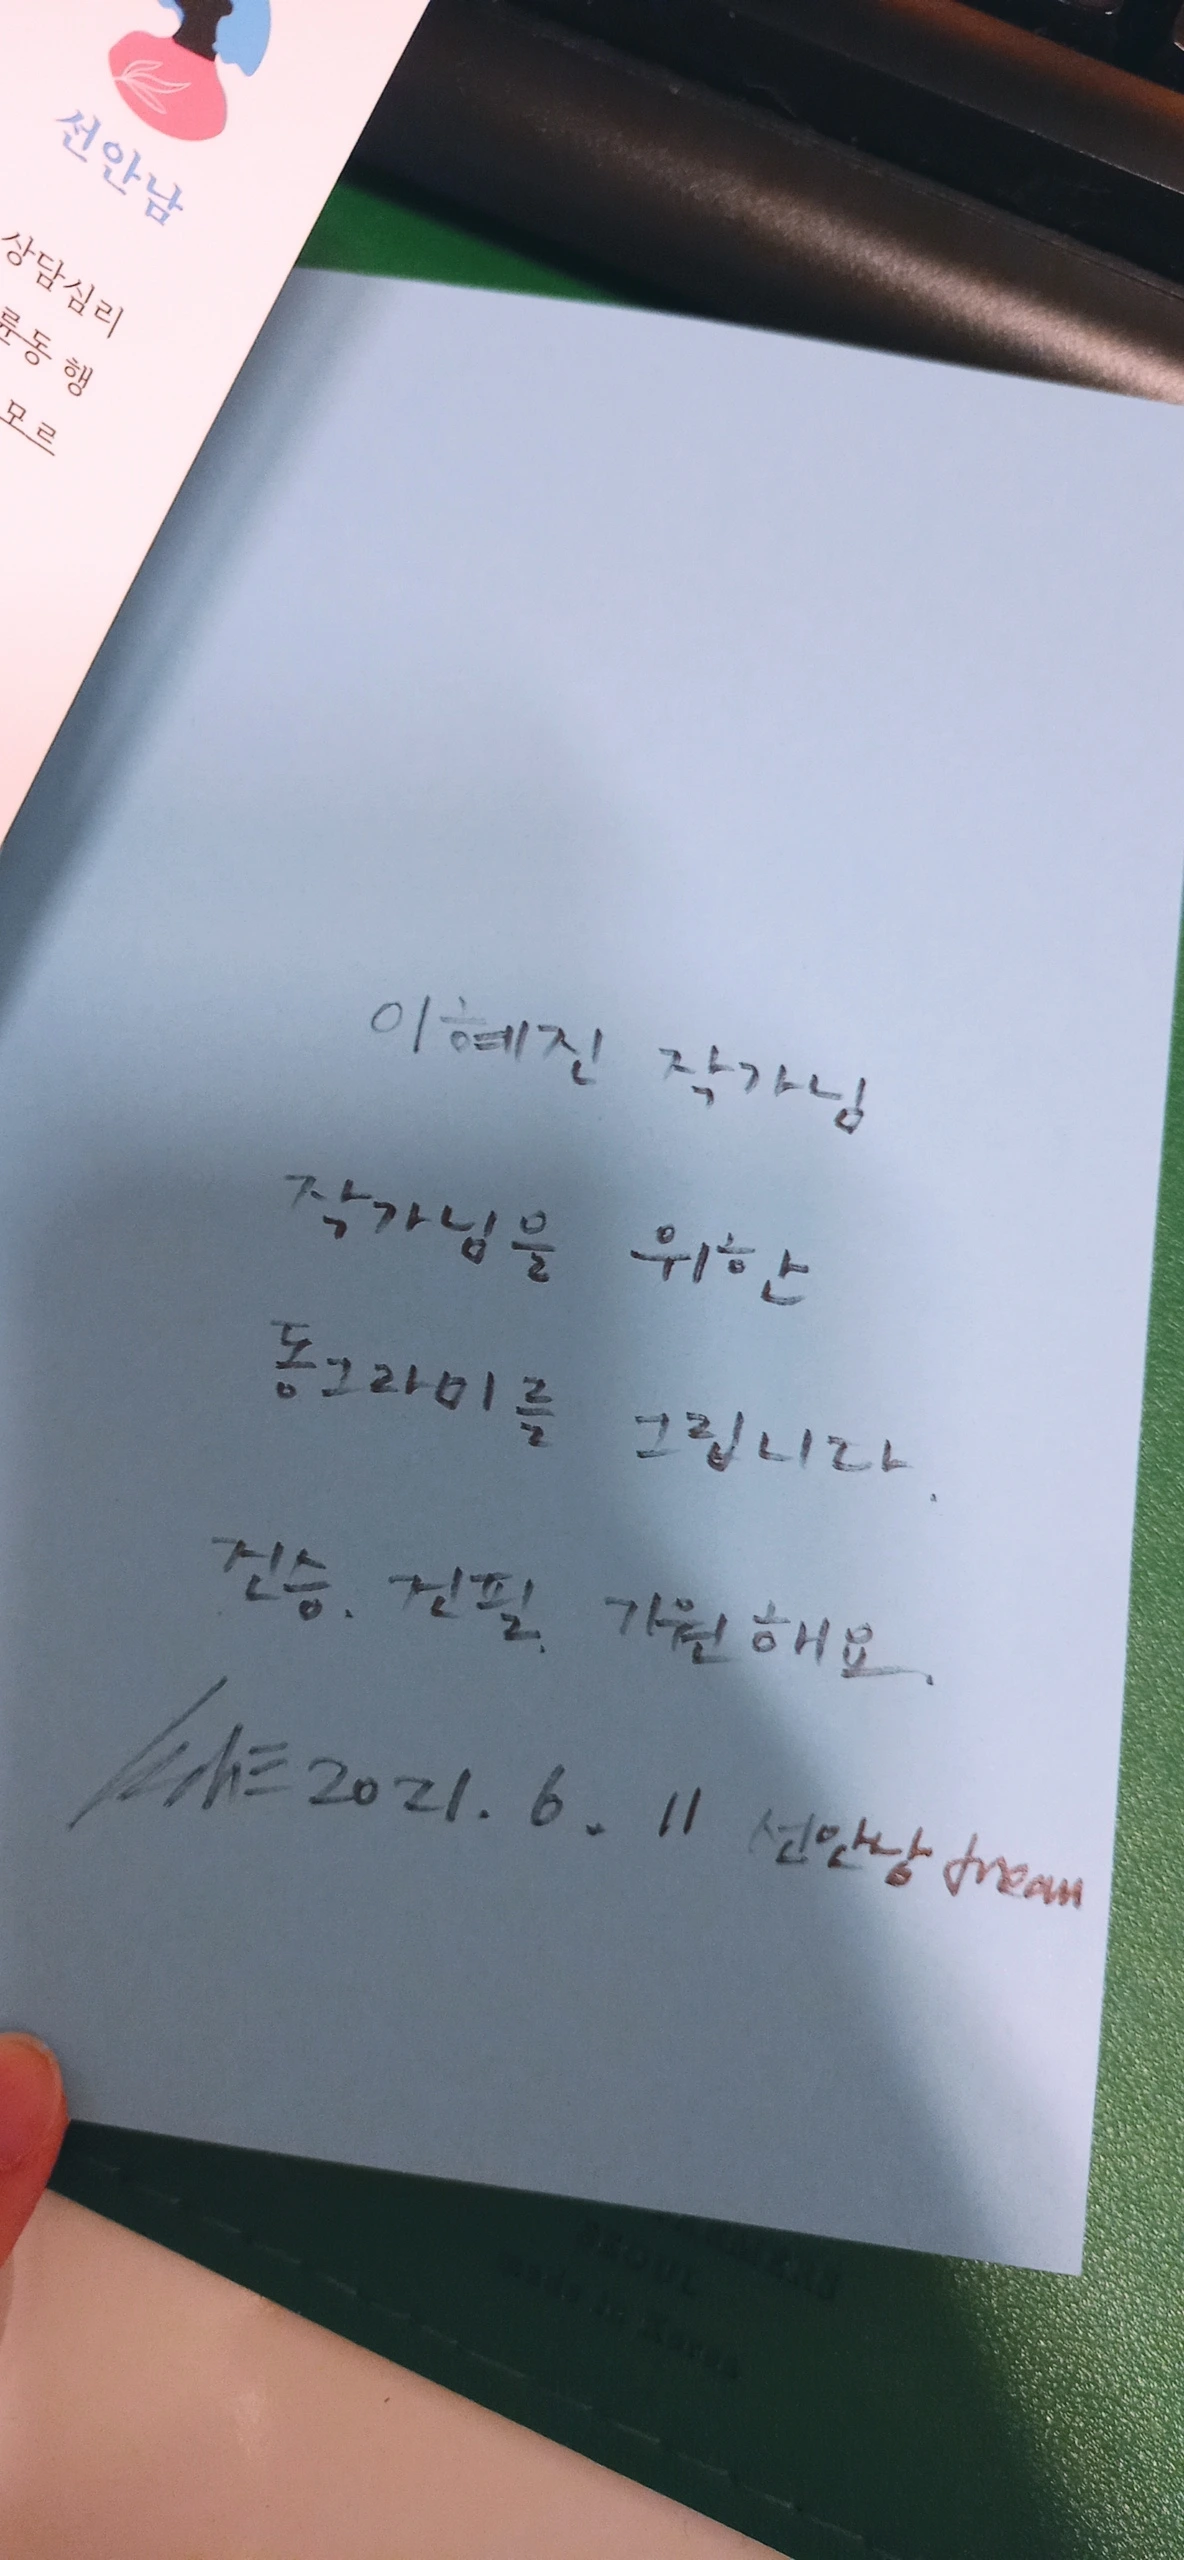 선안남
상담심리
동행
모르
이혜진 작가님
작가님을 위한
동그라미를 그립니다.
건승. 건필. 기원해요.
2021. 6. 11 선안남 dream